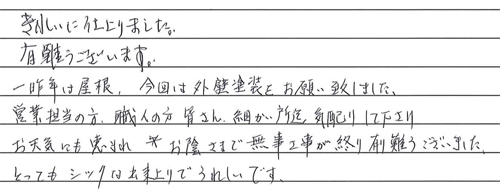 きれいに仕上りました。
有難うございます。
一昨年は屋根、今回は外壁塗装をお願い致しました、
営業担当の方、職人の方 皆さん、細かい所迄 気配りして下さり
お天気にも恵まれ お陰さまで無事工事が終り有難うございました、
とっても シックな出来上りでうれしいです、